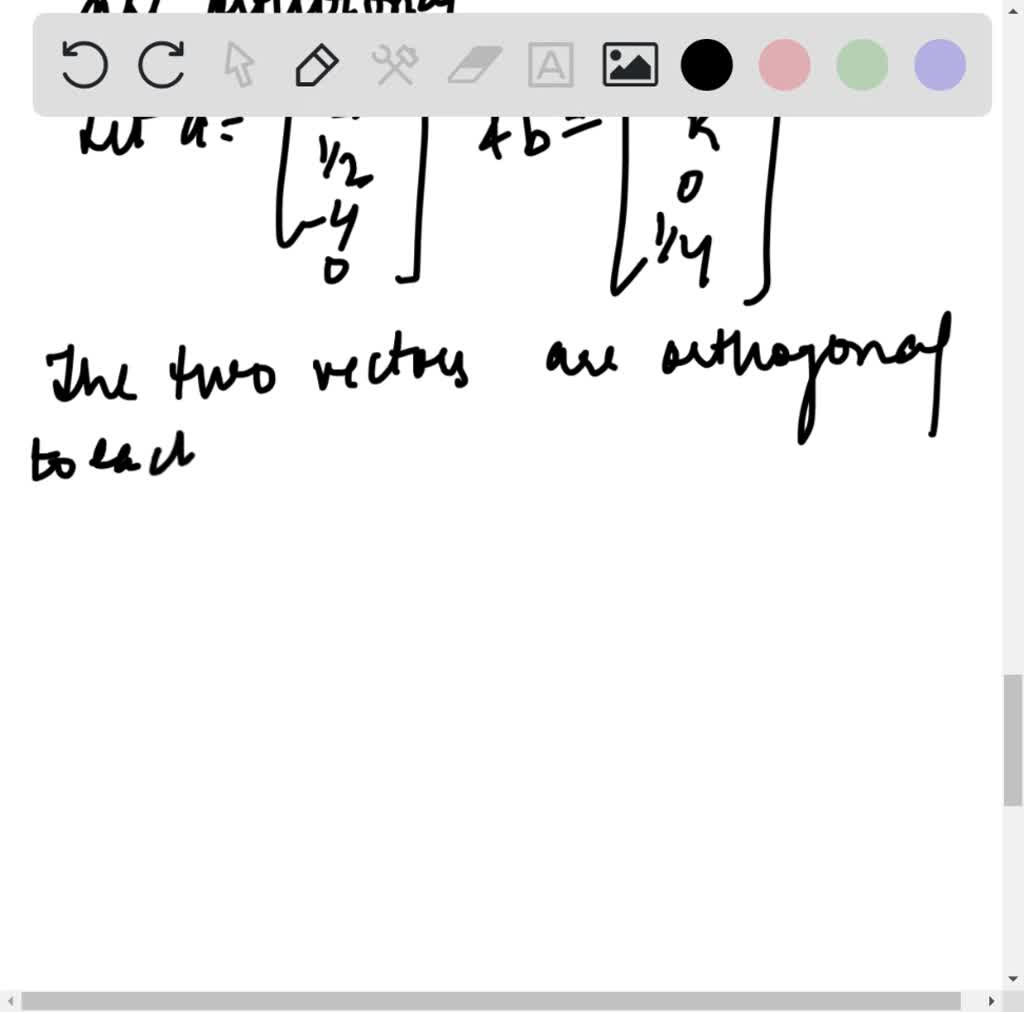 Let a = & b =
1/2 K
-4 0
0 1/4
The two vectors are orthogonal
to each
A